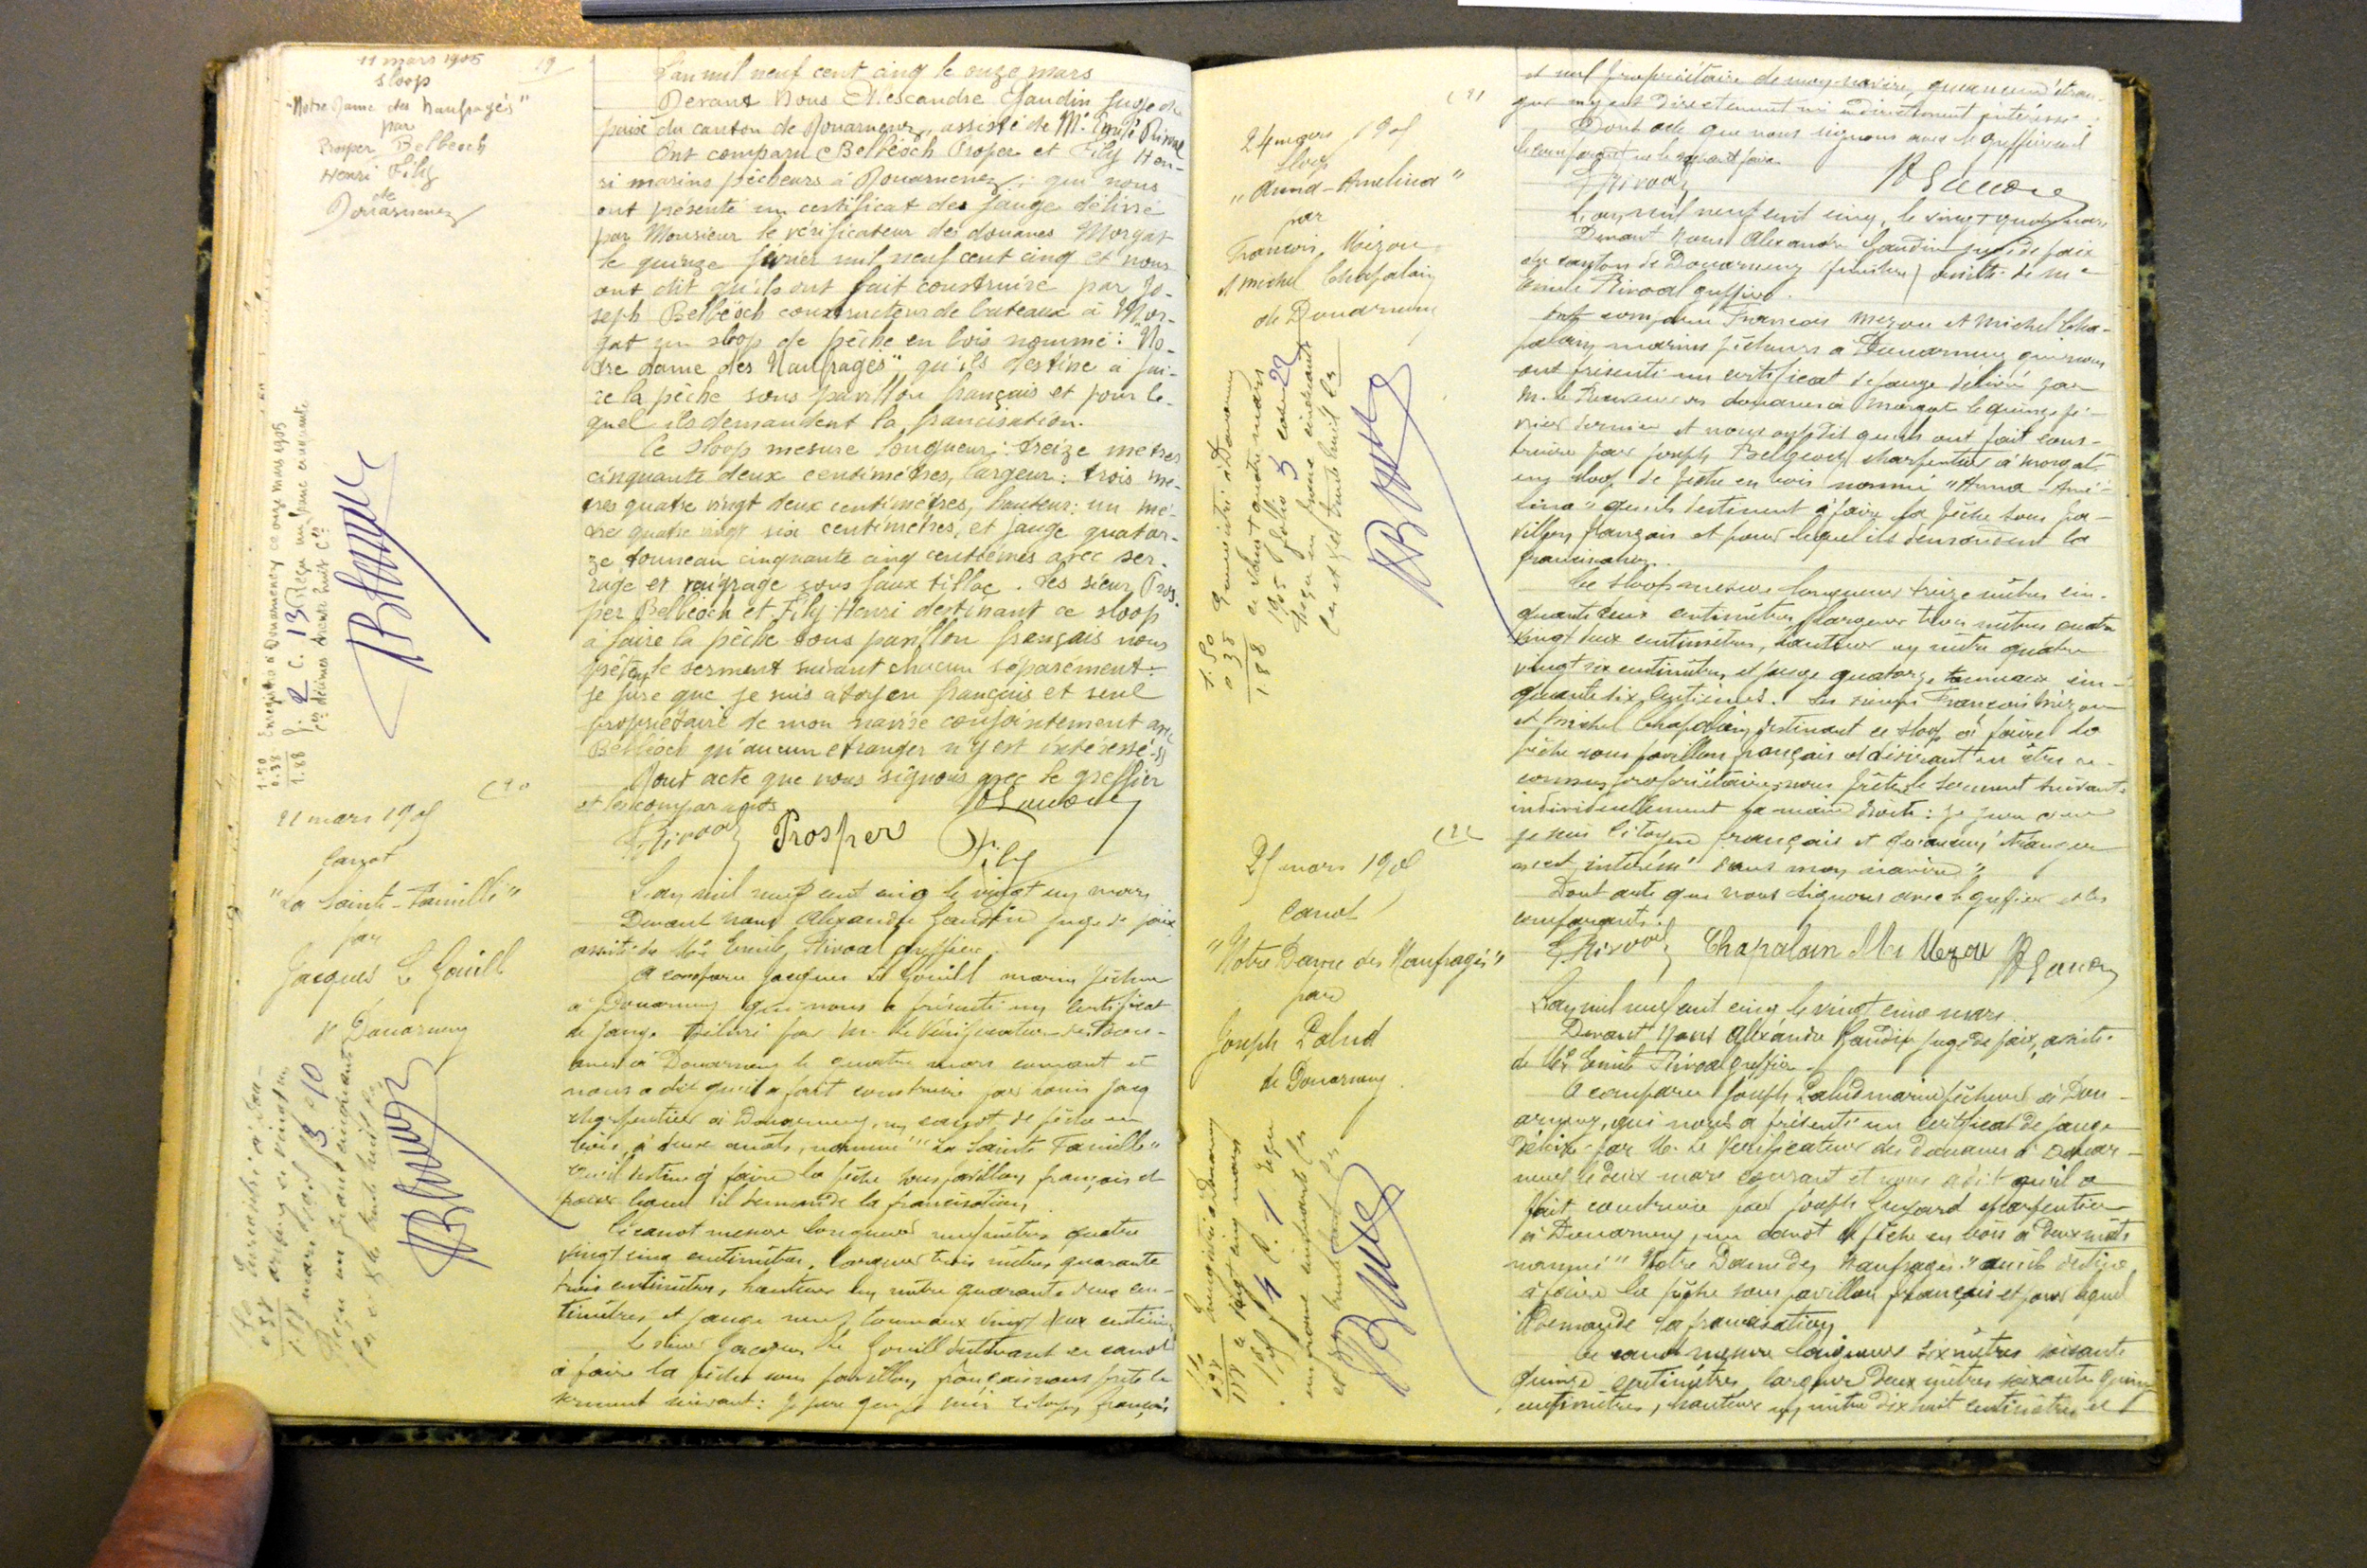 11 mars 1905
19
sloop
"Notre Dame des Naufragés"
par
Prosper Belbéoch
Henri Fily
de
Douarnenez
Enregistré à Douarnenez ce onze mars 1905
f. 2 C. 13 Reçu un franc cinquante
ces décimes trente huit ces
1.50
0.38
1.88
L'an mil neuf cent cinq le onze mars
Devant Nous Alexandre Gaudin Juge de
paix du canton de Douarnenez, assisté de Me Emile Rivoal
Ont comparu Belbéoch Prosper et Fily Hen-
ri marins pêcheurs à Douarnenez; qui nous
ont présenté un certificat des jauge délivré
par Monsieur le vérificateur des douanes Morgat
le quinze février mil neuf cent cinq et nous
ont dit qu'ils ont fait construire par Jo-
seph Belbéoch constructeur de bateaux à Mor-
gat un sloop de pêche en bois nommé: "No-
tre dame des Naufragés" qu'ils destine à fai-
re la pêche sous pavillon français et pour le-
quel ils demandent la francisation.
Ce sloop mesure longueur: treize metres
cinquante deux centimètres, largeur: trois me-
tres quatre vingt deux centimètres, hauteur: un me-
tre quatre vingt six centimètres, et jauge quator-
ze tonneau cinquante cinq centiemes avec ser-
rage et vaigrage sous faux tillac. Les sieurs Pros-
per Belbéoch et Fily Henri destinant ce sloop
à faire la pêche sous pavillon français nous
prêtent le serment suivant chacun séparement:
Je jure que je suis citoyen français et seul
propriétaire de mon navire conjointement avec
Belbéoch qu'aucun etranger n'y est intéressé.
Dont acte que nous signons avec le greffier
et les comparants
ERivoal Prosper Fily
21 mars 1905
(20
Canot
"La Sainte-Famille"
par
Jacques Le Gouill
de Douarnenez
1.50
0.38
1.88
Enregistré à Dou-
arnenez ce vingt un
mars 1905 f 3 c 10
Reçu un franc cinquante
ces et trente huit ces
L'an mil neuf cent cinq le vingt un mars
Devant nous Alexandre Gaudin juge de paix
assisté de Me Emile Rivoal greffier.
A comparu Jacques Le Gouill marin pêcheur
à Douarnenez qui nous a présenté un certificat
de jauge délivré par M. le Vérificateur des Dou-
anes à Douarnenez le quatre mars courant et
nous a dit qu'il a fait construire par
charpentier à Douarnenez, un canot de pêche en
bois, à deux mâts, nommé "La Sainte Famille"
qu'il destine à faire la pêche sous pavillon français et
pour lequel il demande la francisation.
Ce canot mesure longueur neuf mètres quatre
vingt cinq centimètres, largeur trois mètres quarante
trois centimètres, hauteur un mètre quarante deux cen-
timètres et jauge neuf tonneaux vingt deux centièmes
Le sieur Jacques Le Gouill destinant ce canot
à faire la pêche sous pavillon français nous prête le
serment suivant: Je jure que je suis citoyen français
(21
24 mars 1905
Sloop
"Anna-Amelina"
par
François Mézou
et Michel Chapalain
de Douarnenez
1.50
0.38
1.88
Enregistré à Douarnenez
ce vingt quatre mars
1905 folio 3 case 22
Reçu un franc cinquante
ces et trente huit ces
et seul propriétaire de mon navire, qu'aucun étran-
ger n'y est directement ni indirectement intéressé.
Dont acte que nous signons avec le greffier
le comparant ne le sachant faire.
ERivoal
L'an mil neuf cent cinq, le vingt quatre mars
Devant nous Alexandre Gaudin juge de paix
du canton de Douarnenez (finistère) assisté de Me
Emile Rivoal greffier.
Ont comparu François Mezou et Michel Cha-
palain marins pêcheurs à Douarnenez qui nous
ont présenté un certificat de jauge délivré par
M. le Receveur des douanes à Morgat le quinze fé-
vrier dernier et nous ont dit qu'ils ont fait cons-
truire par Joseph Belbeoch charpentier à Morgat,
un sloop de pêche en bois nommé "Anna-Amé-
lina" qu'ils destinent à faire la pêche sous pa-
villon français et pour lequel ils demandent la
francisation.
Ce sloop mesure longueur treize mètres cin-
quante deux centimètres, largeur trois mètres quatre
vingt deux centimètres, hauteur un mètre quatre
vingt six centimètres et jauge quatorze tonneaux cin-
quante dix centièmes. Les sieurs François Mézou
et Michel Chapalain destinant ce sloop à faire la
pêche sous pavillon français et désirant en être re-
connus propriétaires, nous prêtent le serment suivant
individuellement la main droite: je jure que
je suis citoyen français et qu'aucun étranger
n'est intéressé dans mon navire"
Dont acte que nous signons avec le greffier et les
comparants.
ERivoal Chapalain Mi Mezou
(22
25 mars 1905
Canot
"Notre Dame des Naufragés"
par
Joseph Palud
de Douarnenez
1.50
0.38
1.88
Enregistré à Douarnenez
ce vingt cinq mars
1905 f 4 C. 1 Reçu
un franc cinquante ces
et trente huit ces
L'an mil neuf cent cinq le vingt cinq mars.
Devant Nous Alexandre Gaudin juge de paix, assisté
de Me Emile Rivoal greffier.
A comparu Joseph Palud marin pêcheur à Dou-
arnenez, qui nous a présenté un certificat de jauge
délivré par M. le Vérificateur des Douanes à Douar-
nenez le deux mars courant et nous a dit qu'il a
fait construire par Joseph charpentier
à Douarnenez, un canot de pêche en bois à deux mâts
nommé "Notre Dame des Naufragés" qu'il destine
à faire la pêche sous pavillon français et pour lequel
il demande la francisation
Ce canot mesure longueur six mètres soixante
quinze centimètres, largeur deux mètres soixante quinze
centimètres, hauteur un mètre dix huit centimètres et